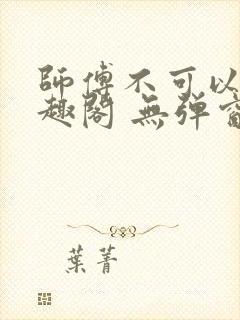 師傅不可以
趣閣 無弹
葉菁